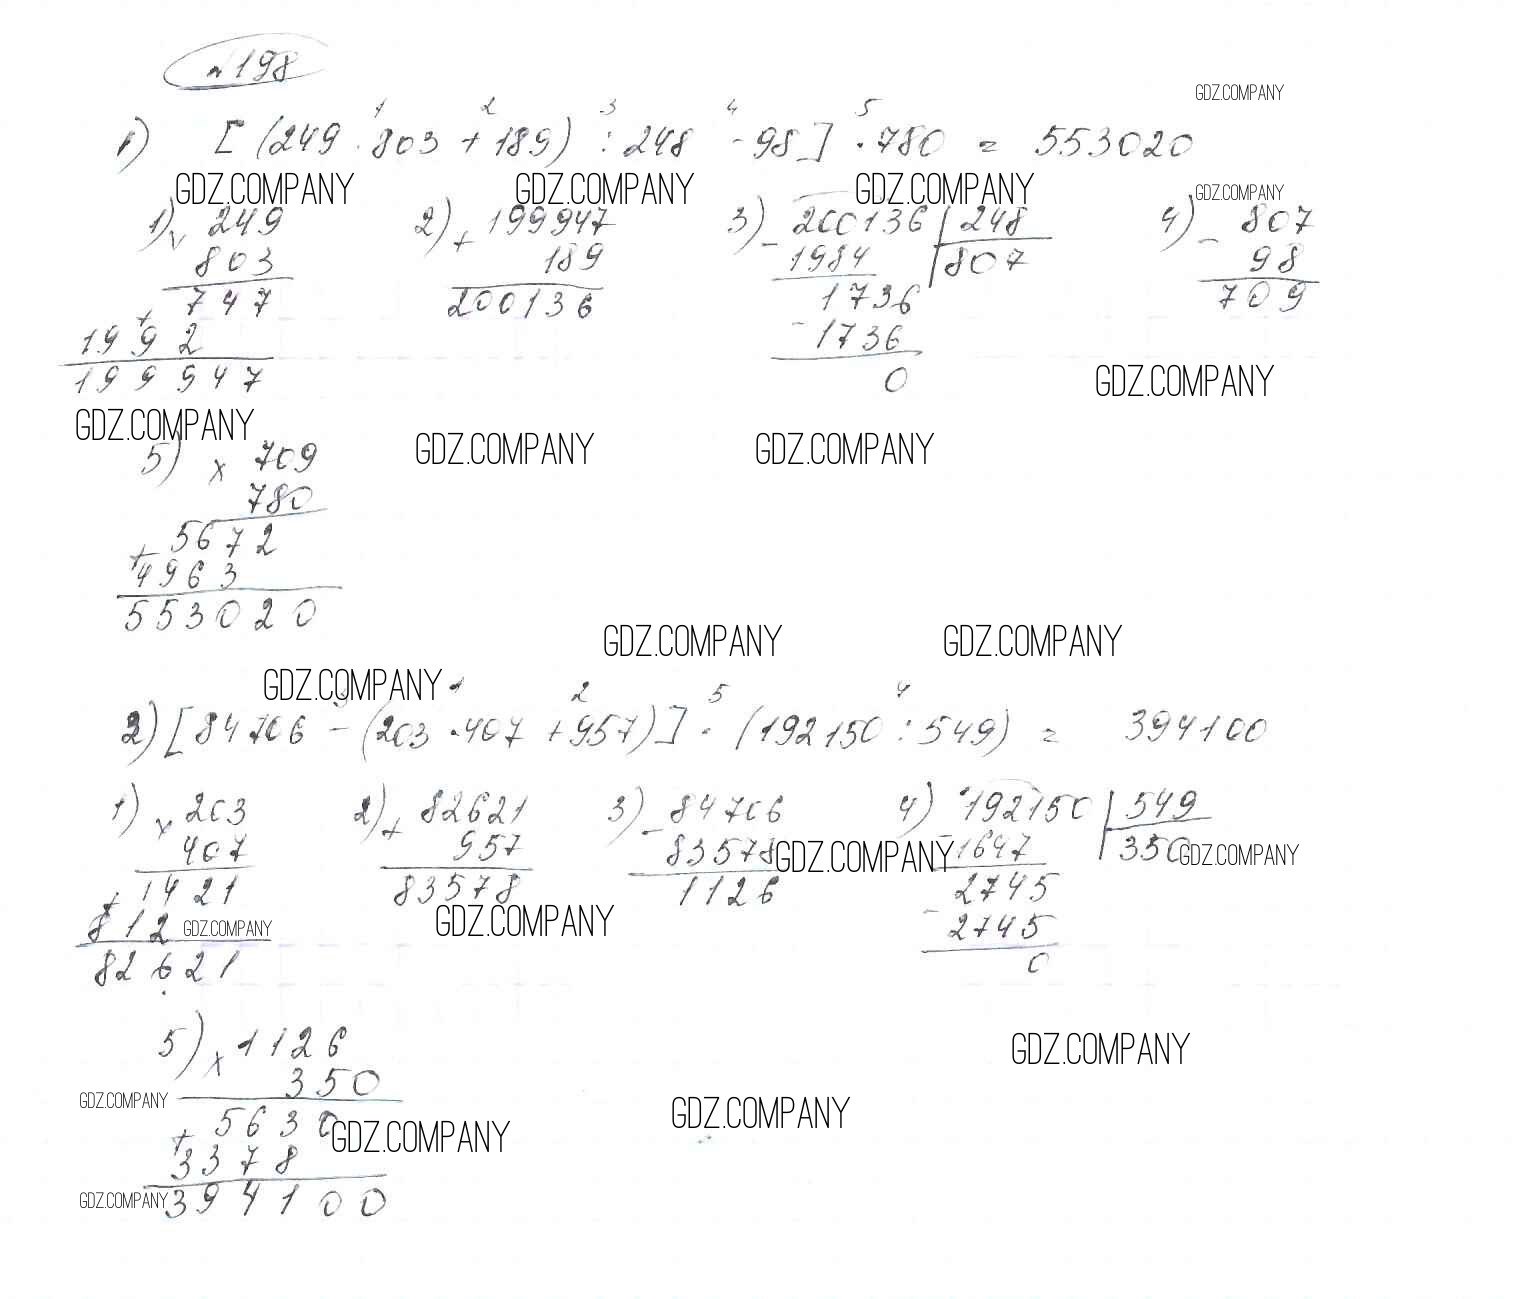 №198
GDZ.COMPANY
1 2 3 4 5
1) [(249 · 803 + 189) : 248 - 98] · 780 = 553020
GDZ.COMPANY GDZ.COMPANY GDZ.COMPANY GDZ.COMPANY
1) × 249
803
747
+
1992
199947
2) + 199947
189
200136
3) - 200136 | 248
1984 | 807
1736
- 1736
0
4) - 807
98
709
GDZ.COMPANY
GDZ.COMPANY GDZ.COMPANY GDZ.COMPANY
5) × 709
780
5672
+
4963
553020
GDZ.COMPANY GDZ.COMPANY
GDZ.COMPANY
3 1 2 5 4
2) [84706 - (203 · 407 + 957)] · (192150 : 549) = 394100
1) × 203
407
1421
+
812
82621
GDZ.COMPANY
2) + 82621
957
83578
GDZ.COMPANY
3) - 84706
83578
1126
GDZ.COMPANY
4) 192150 | 549
- 1647 | 350
2745
- 2745
0
GDZ.COMPANY
5) × 1126
350
5630
+
3378
394100
GDZ.COMPANY
GDZ.COMPANY GDZ.COMPANY
GDZ.COMPANY
GDZ.COMPANY